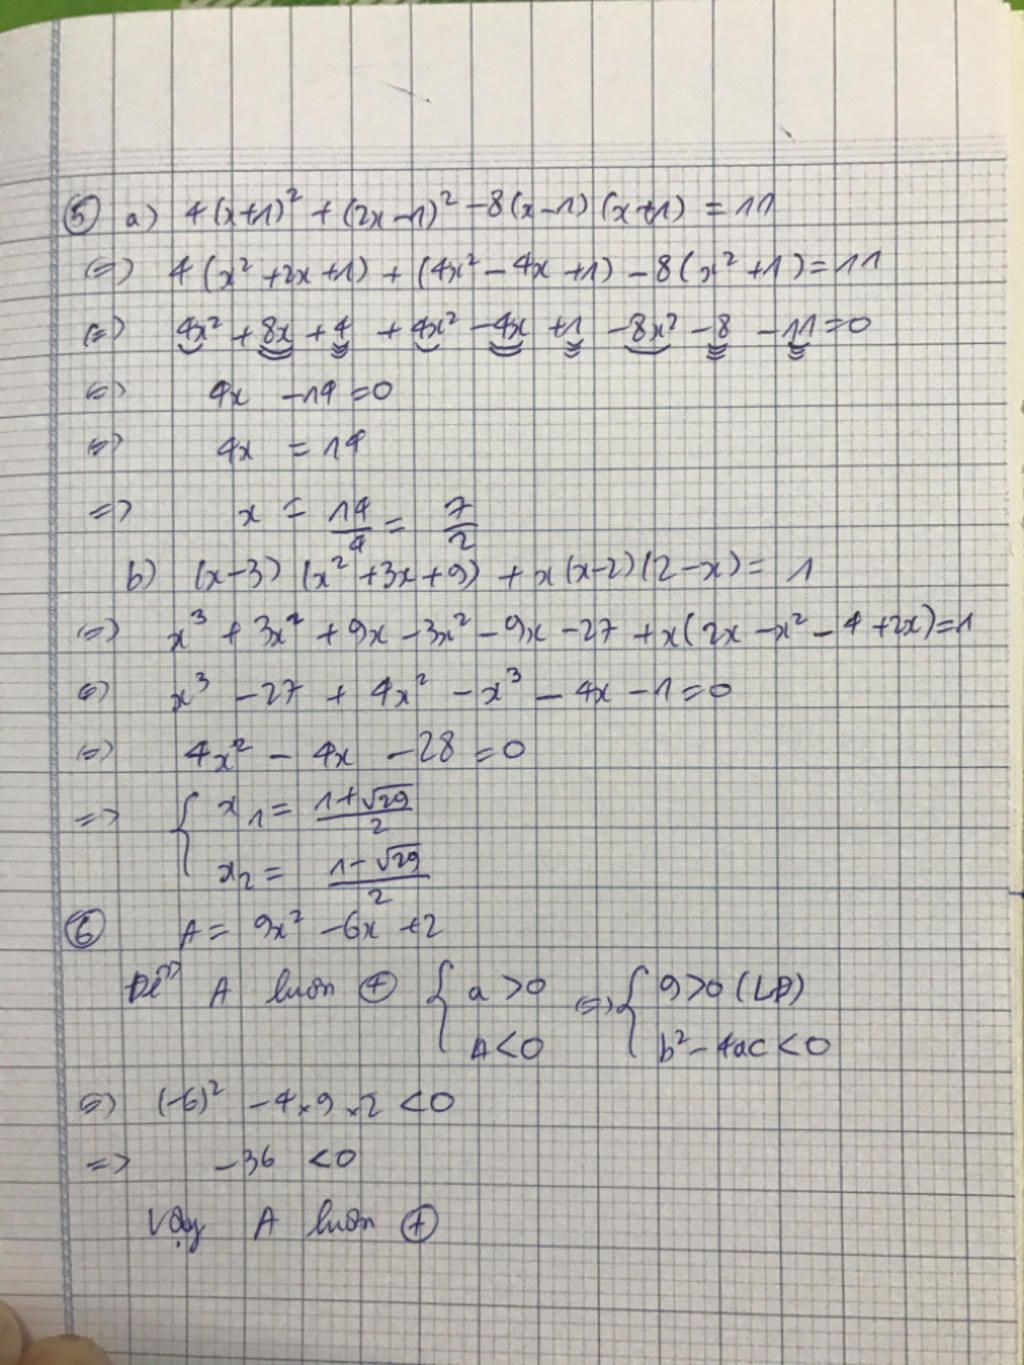 ⑤ a) 4(x+1)² + (2x-1)² - 8(x-1)(x+1) = 11
(=) 4(x² + 2x + 1) + (4x² - 4x + 1) - 8(x² + 1) = 11
(=) 4x² + 8x + 4 + 4x² - 4x + 1 - 8x² - 8 - 11 = 0
(=) 4x - 14 = 0
(=) 4x = 14
=> x = 14/4 = 7/2
b) (x-3)(x² + 3x + 9) + x(x-2)(2-x) = 1
(=) x³ + 3x² + 9x - 3x² - 9x - 27 + x(2x - x² - 4 + 2x) = 1
(=) x³ - 27 + 4x² - x³ - 4x - 1 = 0
(=) 4x² - 4x - 28 = 0
=> { x₁ = (1+√29)/2
x₂ = (1-√29)/2
⑥ A = 9x² - 6x + 2
Để A luôn ⊕ { a > 0 (=) { 9 > 0 (LĐ)
Δ < 0 b² - 4ac < 0
(=) (-6)² - 4×9×2 < 0
=> -36 < 0
Vậy A luôn ⊕